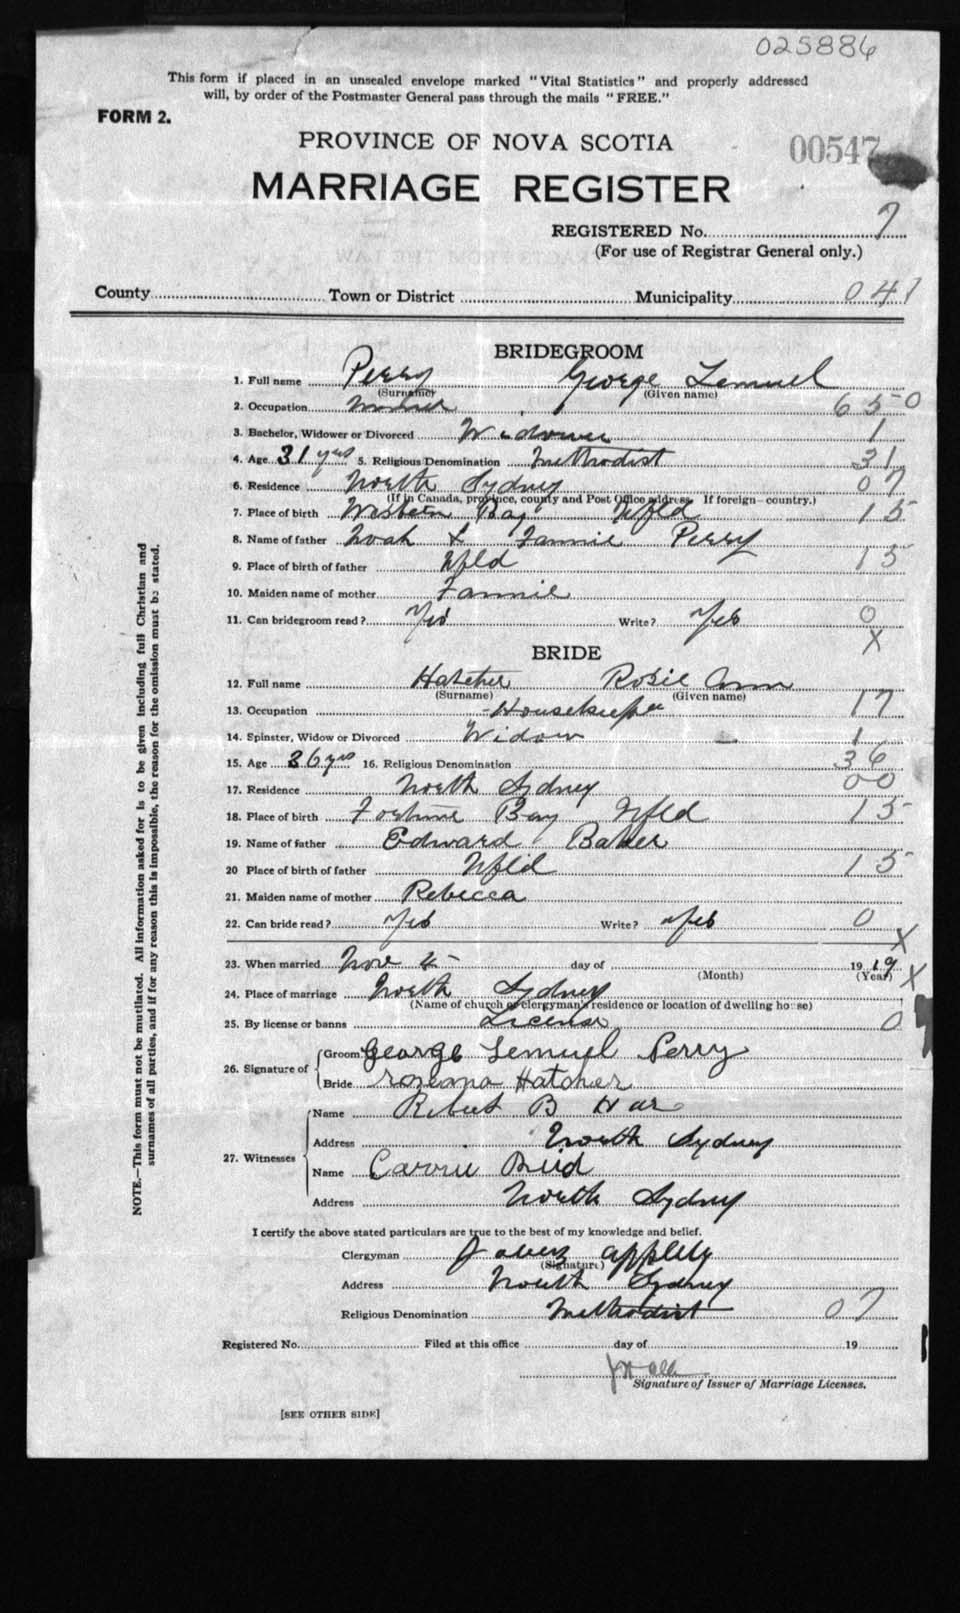 025886
This form if placed in an unsealed envelope marked "Vital Statistics" and properly addressed
will, by order of the Postmaster General pass through the mails "FREE."
FORM 2.
PROVINCE OF NOVA SCOTIA
00547
MARRIAGE REGISTER
REGISTERED No. 7
(For use of Registrar General only.)
County Town or District Municipality 041
BRIDEGROOM
1. Full name Perry George Lemuel
(Surname) (Given name)
2. Occupation 650
3. Bachelor, Widower or Divorced Widower 1
4. Age 31 yrs 5. Religious Denomination Methodist 31
6. Residence North Sydney 07
(If in Canada, province, county and Post Office address. If foreign—country.)
7. Place of birth Western Bay Nfld 15
8. Name of father Noah & Fannie Perry
9. Place of birth of father Nfld 15
10. Maiden name of mother Fannie
11. Can bridegroom read? Yes Write? Yes 0
X
BRIDE
12. Full name Hatcher Rosie Ann
(Surname) (Given name)
13. Occupation Housekeeper 17
14. Spinster, Widow or Divorced Widow 1
15. Age 36 yrs 16. Religious Denomination 36
17. Residence North Sydney 00
18. Place of birth Fortune Bay Nfld 15
19. Name of father Edward Baker
20 Place of birth of father Nfld 15
21. Maiden name of mother Rebecca
22. Can bride read? Yes Write? Yes 0
X
23. When married Nov 5 day of 1919 X
(Month) (Year)
24. Place of marriage North Sydney
(Name of church or clergyman's residence or location of dwelling house)
25. By license or banns License 0
26. Signature of
Groom George Lemuel Perry
Bride rozeanna Hatcher
27. Witnesses
Name Robert B
Address North Sydney
Name Carrie
Address North Sydney
I certify the above stated particulars are true to the best of my knowledge and belief.
Clergyman
(Signature)
Address North Sydney
Religious Denomination Methodist 07
Registered No. Filed at this office day of 19
Signature of Issuer of Marriage Licenses.
[SEE OTHER SIDE]
NOTE.—This form must not be mutilated. All information asked for is to be given including full Christian and
surnames of all parties, and if for any reason this is impossible, the reason for the omission must be stated.